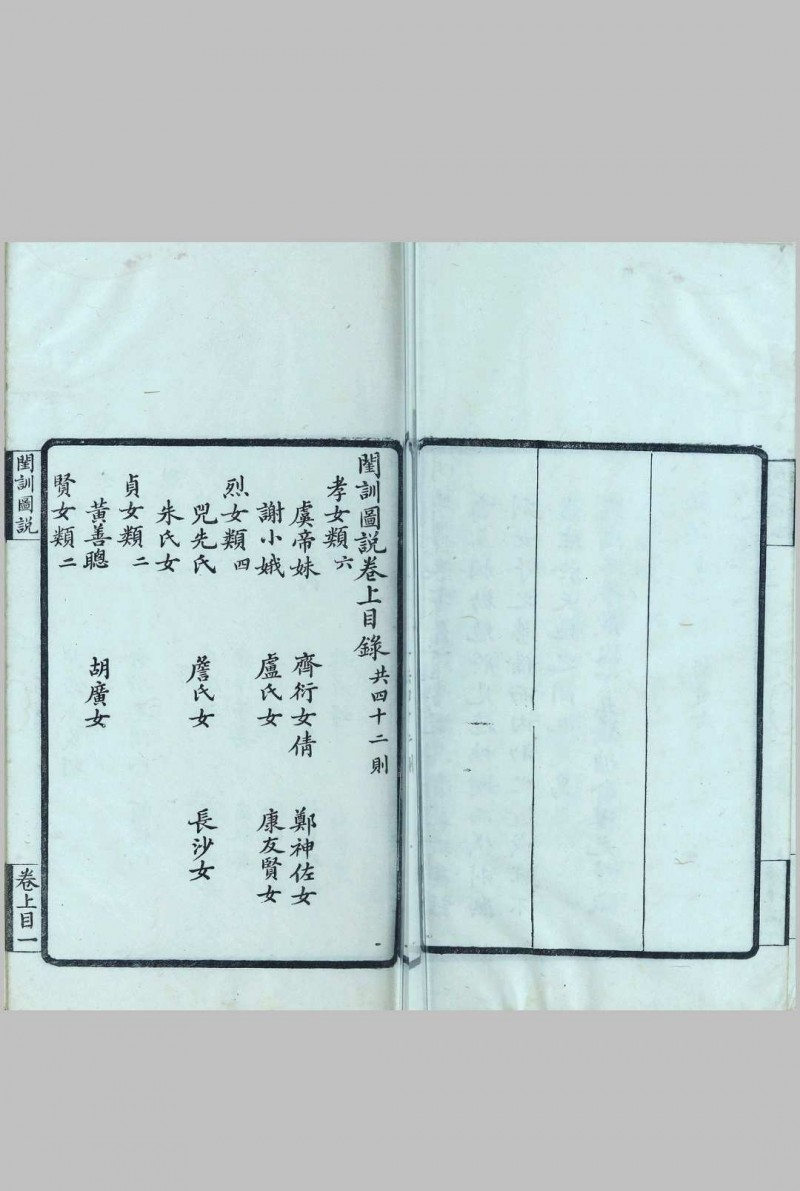 閨訓圖說卷上目錄 共四十二則
孝女類 六
虞帝妹 齊衍女倩 鄭神佐女
謝小娥 盧氏女 康友賢女
烈女類 四
兕先氏 詹氏女 長沙女
朱氏女
貞女類 二
黃善聰 胡廣女
賢女類 二
閨訓圖說
卷上目一